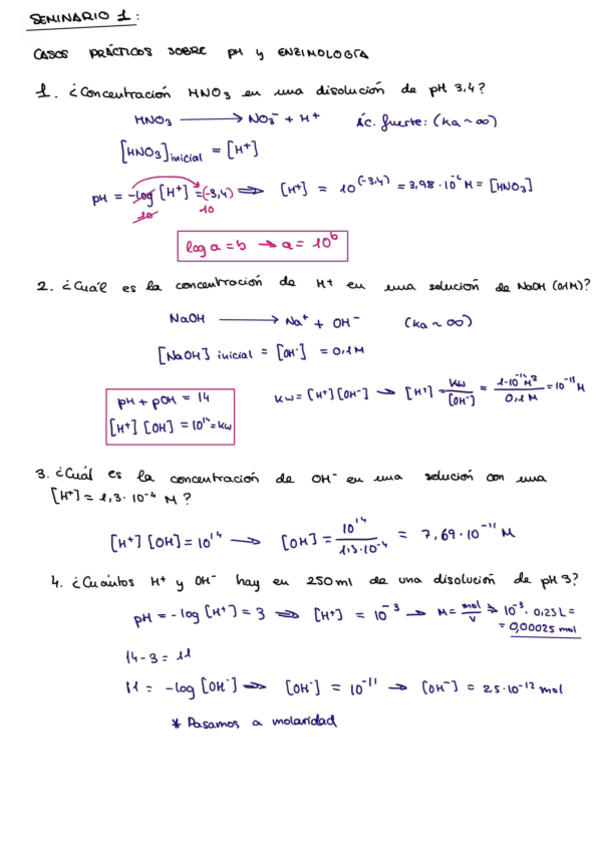 SEMINARIO 1:
CASOS PRÁCTICOS SOBRE pH y ENZIMOLOGÍA
1. ¿Concentración HNO3 en una disolución de pH 3,4?
HNO3 → NO3⁻ + H+ Ác. fuerte: (Ka ~ ∞)
[HNO3]inicial = [H+]
pH = -log [H+] = (-3,4) ⇒ [H+] = 10^(-3,4) = 3,98·10⁻⁴ M = [HNO3]
10 10
log a = b → a = 10^b
2. ¿Cuál es la concentración de H+ en una solución de NaOH (0,1M)?
NaOH → Na+ + OH⁻ (Ka ~ ∞)
[NaOH] inicial = [OH⁻] = 0,1 M
pH + pOH = 14
[H+] [OH] = 10¹⁴ = Kw
Kw = [H+] [OH⁻] → [H+] Kw/[OH⁻] = 1·10⁻¹⁴ M²/0,1 M = 10⁻¹³ M
3. ¿Cuál es la concentración de OH⁻ en una solución con una
[H+] = 1,3·10⁻⁴ M?
[H+] [OH] = 10¹⁴ → [OH] = 10¹⁴/1,3·10⁻⁴ = 7,69·10⁻¹¹ M
4. ¿Cuántos H+ y OH⁻ hay en 250 ml de una disolución de pH 3?
pH = -log [H+] = 3 ⇒ [H+] = 10⁻³ → M = mol/V ⇒ 10⁻³ · 0,25 L =
= 0,00025 mol
14-3 = 11
11 = -log [OH⁻] ⇒ [OH⁻] = 10⁻¹¹ → [OH⁻] = 25·10⁻¹² mol
* Pasamos a molaridad